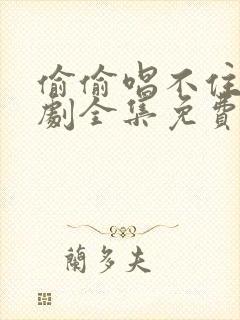 偷偷唱不住
劇全集免費
蘭多夫